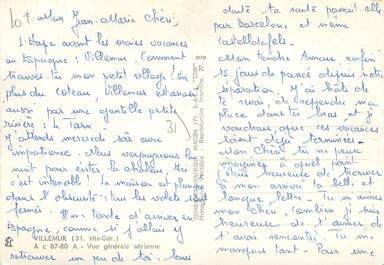 10F Mon Jean-Marie Chéri,
L'Etape avant les vraies vacances
en Espagne : Villemur. Comment
trouves-tu mon petit village ? en
plus du coteau, Villemur est arrosé
aussi par une gentille petite
rivière : le Tarn.
J'attends mercredi soir avec
impatience. Nous voyageons la
nuit pour éviter la chaleur. Ici
c'est intenable ! La maison est plongée
dans l'obscurité : tous les volets sont
fermés. Il me tarde d'arriver en
Espagne, comme si j'allais y
retrouver un peu de toi. Sans
31
VILLEMUR (31. Hte-Gar.)
A c 87-80 A - Vue générale aérienne
doute ta santé passait-elle
par Barcelone et même
Castelldefels.
mon tendre Amour, enfin
15 jours de passés depuis notre
séparation. J'ai hâte de
te revoir, de reprendre ma
place dans tes bras et je
voudrais que ces vacances
soient déjà terminées.
mon Chéri, tu ne peux
imaginer à quel point
j'étais heureuse de trouver
à mon arrivée ta belle et
longue lettre. Tu m'aimes
mon Chéri, combien je suis
heureuse de t'aimer, de
t'avoir rencontré. Tu me
manques tant. Pour une